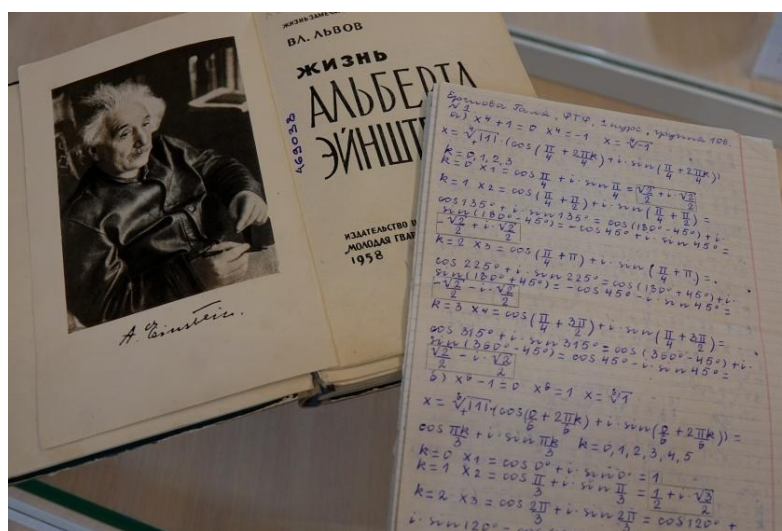 ЖИЗНЬ ЗАМЕ
ВЛ. ЛЬВОВ
ЖИЗНЬ
АЛЬБЕРТА
ЭЙНШТЕ
ИЗДАТЕЛЬСТВО Ц
МОЛОДАЯ ГВАР
1958
469038
A. Einstein.
Ермолова Галя, ФТФ, 1 курс, группа 106.
№ 1
а) x⁴+1=0 x⁴=-1 x=⁴√-1
x=⁴√|1|·(cos(π/4+2πk/4)+i·sin(π/4+2πk/4))
k=0,1,2,3
k=0 x₁=cos π/4+i·sin π/4=√2/2+i·√2/2
k=1 x₂=cos(π/4+π/2)+i·sin(π/4+π/2)=
cos135°+i·sin135°=cos(180°-45°)+i·
sin(180°-45°)=-cos45°+i·sin45°=
-√2/2+i·√2/2
k=2 x₃=cos(π/4+π)+i·sin(π/4+π)=
cos225°+i·sin225°=cos(180°+45°)+i·
sin(180°+45°)=-cos45°-i·sin45°=
-√2/2-i·√2/2
k=3 x₄=cos(π/4+3π/2)+i·sin(π/4+3π/2)=
cos315°+i·sin315°=cos(360°-45°)+i·
sin(360°-45°)=cos45°-i·sin45°=
√2/2-i·√2/2
б) x⁶-1=0 x⁶=1 x=⁶√1
x=⁶√|1|·(cos(0/6+2πk/6)+i·sin(0/6+2πk/6))=
cos πk/3+i·sin πk/3 k=0,1,2,3,4,5
k=0 x₁=cos0°+i·sin0°=1
k=1 x₂=cos π/3+i·sin π/3=1/2+i·√3/2
k=2 x₃=cos 2π/3+i·sin 2π/3=cos120°+
i·sin120°=